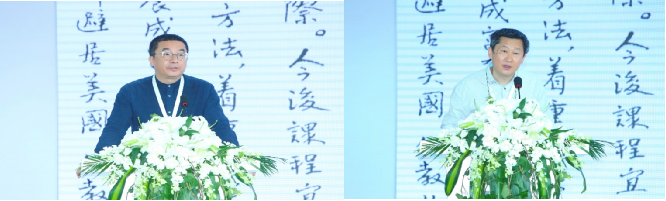 際。今後課程宜
方法，着
成
避居美國
際。今後課程宜
方法，着重
成
避居美國